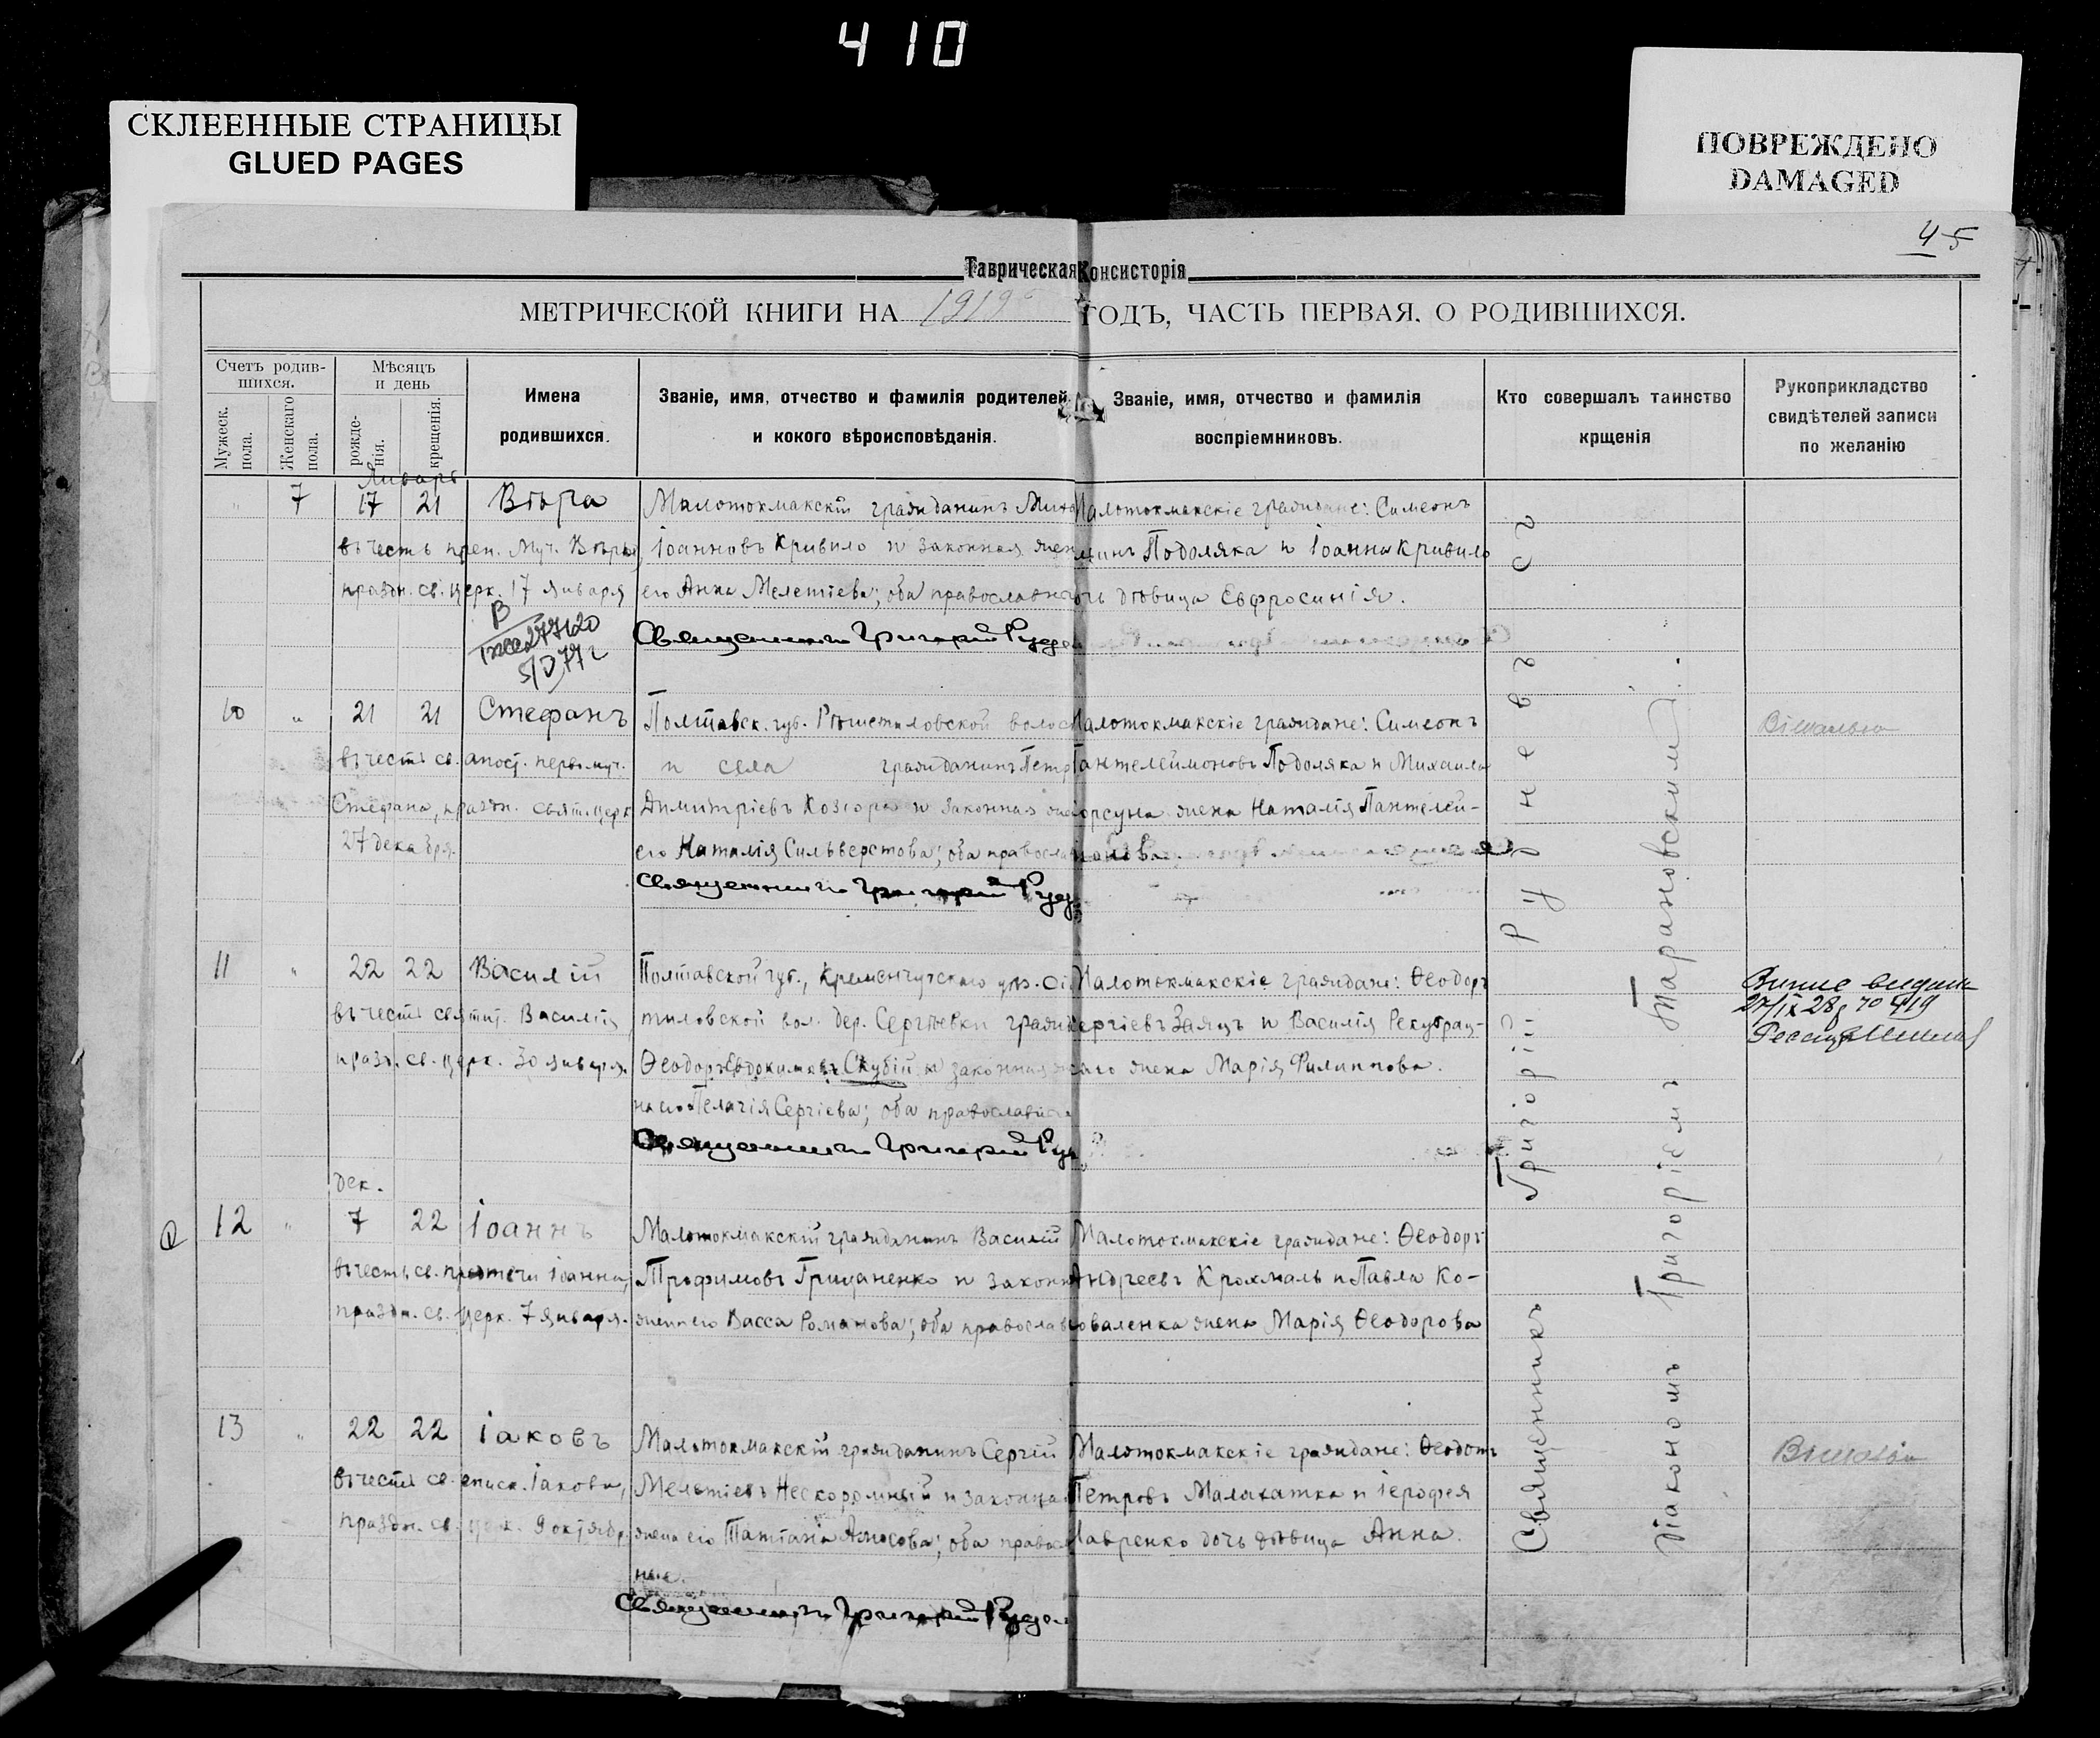 410
СКЛЕЕННЫЕ СТРАНИЦЫ
GLUED PAGES
ПОВРЕЖДЕНО
DAMAGED
45
Таврическая Консисторія
МЕТРИЧЕСКОЙ КНИГИ НА 1919 ГОДЪ, ЧАСТЬ ПЕРВАЯ. О РОДИВШИХСЯ.
Счетъ родив-
шихся.
Мужеск.
пола.
Женскаго
пола.
Мѣсяцъ
и день
рожде-
нія.
крещенія.
Имена
родившихся.
Званіе, имя, отчество и фамилія родителей
и кокого вѣроисповѣданія.
Званіе, имя, отчество и фамилія
воспріемниковъ.
Кто совершалъ таинство
крщенія
Рукоприкладство
свидѣтелей записи
по желанію
Январь
" 7 17 21 Вѣра
въ честь прен. муч. Вѣры,
праздн. св. церк. 17 января
Малотокмакскій гражданинъ Миха
Іоанновъ Кривило и законная жен
его Анна Мелетіева; оба православн
Священникъ Григорій Рудн
Малотокмакскіе граждане: Симеонъ
Подоляка и Іоанна Кривило
дѣвица Евфросинія.
10 " 21 21 Стефанъ
въ честь св. апост. первомуч.
Стефана, праздн. свят. церк
27 декабря.
Полтавск. губ. Рѣшетиловской волос
и села гражданинъ Петр
Димитріевъ Козюра и законная же
его Наталія Сильверстова; оба правосла
Священникъ Григорій Руд
Малотокмакскіе граждане: Симеонъ
Пантелеймоновъ Подоляка и Михаила
Корсуна жена Наталія Пантелей-
11 " 22 22 Василій
въ честь святит. Василія,
празд. св. церк. 30 января.
Полтавской губ., Кременчугскаго уѣз.
тиловской вол. дер. Сергѣевки гражд
Ѳеодоръ Евдокимовъ Скубій и законная
на его Пелагія Сергіева; оба православн
Священникъ Григорій Руд
Малотокмакскіе граждане: Ѳеодоръ
Сергіевъ Заяцъ и Василія Рекубрац-
каго жена Марія Филиппова.
27/IX 28 г
дек.
12 " 7 22 Іоаннъ
въ честь св. предтечи Іоанна,
праздн. св. церк. 7 января.
Малотокмакскій гражданинъ Василій
Трофимовъ Грицаненко и законн
жена его Васса Романова; оба православ
Малотокмакскіе граждане: Ѳеодоръ
Андреевъ Крохмаль и Павла Ко-
оваленка жена Марія Ѳеодорова
13 " 22 22 Іаковъ
въ честь св. еписк. Іакова,
праздн. св. церк. 9 октябр.
Малотокмакскій гражданинъ Сергій
Мелетіевъ Нескоромный и законна
жена его Татіана Амосова; оба правосл
ные.
Священникъ Григорій Рудн
Малотокмакскіе граждане: Ѳеодотъ
Петровъ Малахатка и Іерофея
Лавренко дочь дѣвица Анна.
Священникъ Григорій Рудневъ съ
діакономъ Григоріемъ Тарановскимъ.